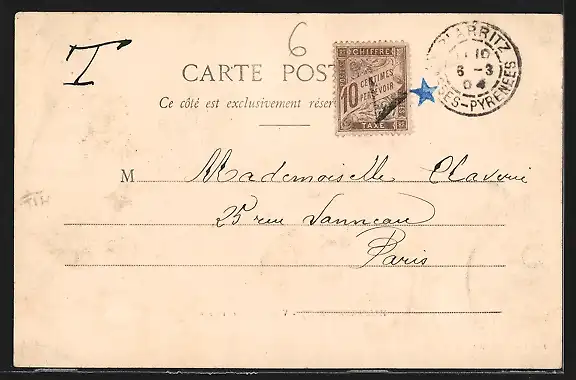 6
T
CARTE POST
Ce côté est exclusivement réser
CHIFFRE
10 CENTIMES
A PERCEVOIR
TAXE
BIARRITZ
10
6 -3
04
BSES-PYRENEES
M Mademoiselle Claverie
25 rue Vanneau
Paris